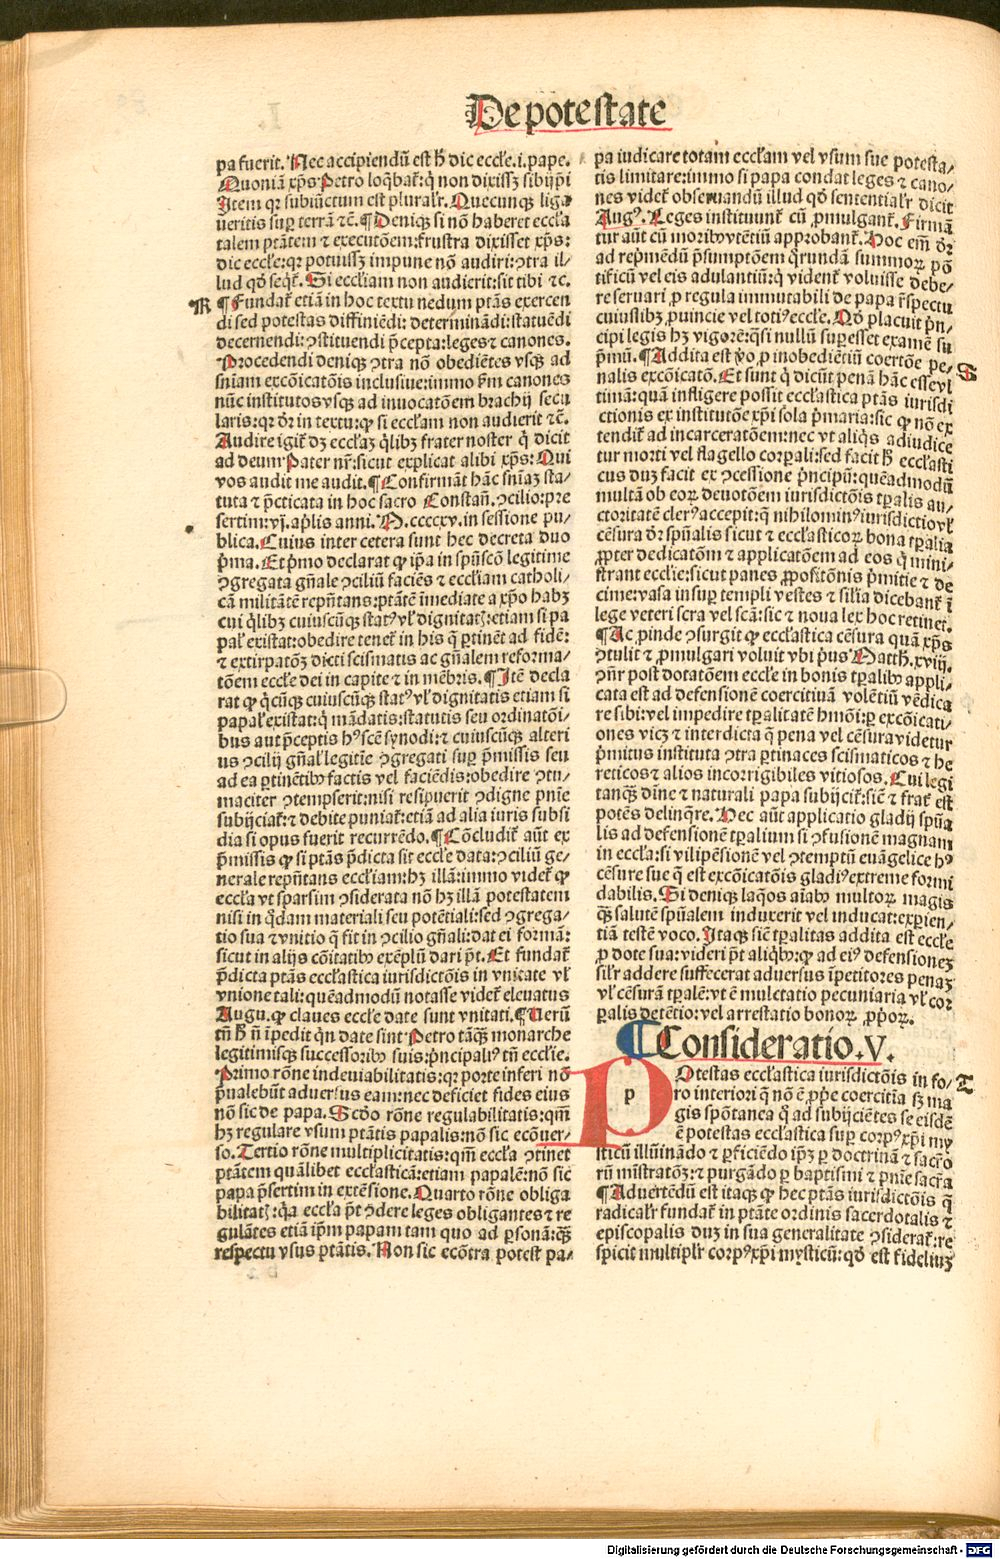 De potestate
pa fuerit. Nec accipiendū est h̄ dic eccłe.i.pape.
Quoniā xp̄s Petro loq̄bat̄: q̄ non dixissꝫ sibijp̄i
Item qꝛ subiūctum est pluralr̄. Quecunqꝫ liga
ueritis sup̱ terrā ⁊c̄. ¶Deniqꝫ si nō haberet eccła
talem ptātem ⁊ executōem: frustra dixisset xp̄s:
dic eccłe: qꝛ potuissꝫ impune nō audiri: ꝯtra il⸗
lud qd̄ seqt̄. Si eccłiam non audierit: sit tibi ⁊c.
R ¶Fundat̄ etiā in hoc textu nedum ptās exercen
di sed potestas diffiniēdi: determinādi: statuēdi
decernendi: ꝯstituendi p̄cepta: leges ⁊ canones.
Procedendi deniqꝫ ꝯtra nō obediētes vsqꝫ ad
sniam excōicatōis inclusiue: immo ẜm canones
nūc institutos vsqꝫ ad inuocatōem brachij secu
laris: qꝛ dr̄ in textu: ꝙ si eccłam non audierit ⁊c̄.
Audire igit̄ dꝫ eccłaꝫ q̄libꝫ frater noster q̄ dicit
ad deum Pater nr̄: sicut explicat alibi xp̄s: Qui
vos audit me audit. ¶Confirmāt hāc sn̄iaꝫ sta⸗
tuta ⁊ p̄cticata in hoc sacro Constan̄. ꝯcilio: pre
sertim: vj. ap̄lis anni. M.ccccxv. in sessione pu⸗
blica. Cuius inter cetera sunt hec decreta duo
p̄ma. Et p̄mo declarat ꝙ ip̄a in sp̄uscō legitime
ꝯgregata gn̄ale ꝯciliū faciēs ⁊ eccłiam catholi⸗
cā militātē repn̄tans: ptātē īmediate a xp̄o habꝫ
cui q̄libꝫ cuiuscūqꝫ statꝰ vł dignitatꝭ: etiam si pa
pał existat: obedire tenet̄ in his q̄ ꝑtinēt ad fidē:
⁊ extirpatōꝫ dicti scismatis ac gn̄alem reforma⸗
tōem eccłe dei in capite ⁊ in mēbris. ¶Itē decla
rat ꝙ q̄cūqꝫ cuiuscūqꝫ statꝰ vł dignitatis etiam si
papał existat: q̄ mādatis: statutis seu ordinatōi⸗
bus aut p̄ceptis hꝰ scē synodi: ⁊ cuiuscūqꝫ alteri
us ꝯcilij gn̄ał legitie ꝯgregati sup̱ p̄missis seu
ad ea ꝑtinētibꝰ factis vel faciēdis: obedire ꝯtu⸗
maciter ꝯtempserit: nisi resipuerit ꝯdigne pn̄ie
subijciat̄: ⁊ debite puniat̄: etiā ad alia iuris subsi
dia si opus fuerit recurrēdo. ¶Cōcludit̄ aūt ex
p̄missis ꝙ si ptās p̄dicta sit eccłe data: ꝯciliū ge⸗
nerale repn̄tans eccłiam: hꝫ illā: immo videt̄ ꝙ
eccła vt sparsim ꝯsiderata nō hꝫ illā potestatem
nisi in q̄dam materiali seu potētiali: sed ꝯgrega⸗
tio sua ⁊ vnitio q̄ fit in ꝯcilio gn̄ali: dat ei formā:
sicut in alijs cōitatibꝰ exēplū dari pt̄. Et fundat̄
p̄dicta ptās eccłastica iurisdictōis in vnitate vł
vnione tali: quēadmodū notasse videt̄ eleuatus
Augu. ꝙ claues eccłe date sunt vnitati. ¶Verū
tn̄ h̄ n̄ īpedit qn̄ date sint Petro tāqꝫ monarche
legitimisqꝫ successoribꝰ suis: p̄ncipaliꝰ tn̄ eccłie.
Primo rōne indeuiabilitatis: qꝛ porte inferi nō
p̄ualebūt aduersus eam: nec deficiet fides eius
nō sic de papa. Scdo rōne regulabilitatis: qm̄
hꝫ regulare vsum ptātis papalis: nō sic ecōuer⸗
so. Tertio rōne multiplicitatis: qm̄ eccła ꝯtinet
ptātem quālibet eccłasticā: etiam papalē: nō sic
papa p̄sertim in extēsione. Quarto rōne obliga
bilitatꝭ: q̄a eccła pt̄ ꝯdere leges obligantes ⁊ re
gulātes etiā ip̄m papam tam quo ad ꝑsonā: qꝫ
respectu vsus ptātis. Non sic ecōtra potest pa⸗
pa iudicare totam eccłam vel vsum sue potesta⸗
tis limitare: immo si papa condat leges ⁊ cano⸗
nes videt̄ obseruandū illud qd̄ sentential̄r dicit
Augꝰ. Leges instituunt̄ cū ꝓmulgant̄. Firmā
tur aūt cū moribꝰ vtētiū approbant̄. Hoc em̄ dr̄
ad rep̄mēdū p̄sumptōem qrundā summoꝝ pō
tificū vel eis adulantiū: q̄ vident̄ voluisse debe⸗
re seruari ꝓ regula immutabili de papa r̄spectu
cuiuslibꝫ ꝓuincie vel totiꝰ eccłe. Qd̄ placuit p̄n⸗
cipi legis hꝫ vigorē: qsi nullū superesset examē su
p̄mū. ¶Addita est v̄o ꝓ inobediētiū coertōe pe⸗ S
nalis excōicatō. Et sunt q̄ dicūt penā hāc esse vl
timā: quā infligere possit eccłastica ptās iurisdi
ctionis ex institutōe xp̄i sola p̄maria: sic ꝙ nō ex
tendit̄ ad incarceratōem: nec vt aliq̄s adiudice
tur morti vel flagello corꝑali: sed facit h̄ eccłasti
cus duꝫ facit ex ꝯcessione p̄ncipū: quēadmodū
multā ob eoꝝ deuotōem iurisdictōis tꝑalis au⸗
ctoritatē clerꝰ accepit: q̄ nihilominꝰ iurisdictio vł
cēsura dr̄ spūalis sicut ⁊ eccłasticoꝝ bona tꝑalia
ꝓpter dedicatōem ⁊ applicatōem ad eos q̄ mini⸗
strant eccłie: sicut panes ꝓpositōnis p̄mitie ⁊ de
cime: vasa insup̱ templi vestes ⁊ sił̄ia dicebant̄ ī
lege veteri scra vel scā: sic ⁊ noua lex hoc retinet.
¶Ac ꝓinde ꝯsurgit ꝙ eccłastica cēsura quā xp̄s
ꝯtulit ⁊ ꝓmulgari voluit vbi p̄us Matth̄. xviij.
ꝯn̄r post dotatōem eccłe in bonis tꝑalibꝰ appli⸗
cata est ad defensionē coercitiuā volētiū vēdica
re sibi: vel impedire tꝑalitatē hmōi: ꝑ excōicati⸗
ones vicꝫ ⁊ interdicta q̄ pena vel cēsura videtur
p̄mitus instituta ꝯtra ꝑtinaces scismaticos ⁊ he
reticos ⁊ alios incorrigibiles vitiosos. Cui legi
tanqꝫ dīne ⁊ naturali papa subijcit̄: siē ⁊ frat̄ est
potēs delinq̄re. Nec aūt applicatio gladij spūa
lis ad defensionē tꝑalium si ꝯfusionē magnam
in eccła: si vilipēsionē vel ꝯtemptū euāgelice hꝰ
cēsure sue q̄ est excōicatōis gladiꝰ extreme formi
dabilis. Si deniqꝫ laq̄os aīabꝰ multoꝝ magis
qꝫ salutē spūalem induxerit vel inducat: exꝑien⸗
tiā testē voco. Itaqꝫ siē tꝑalitas addita est eccłe
ꝓ dote sua: videri pt̄ aliq̄bꝰ: ꝙ ad eiꝰ defensioneꝫ
sił̄r addere suffecerat aduersus īpetitores penaꝫ
vł cēsurā tꝑalē: vt ē mulctatio pecuniaria vł cor
ꝑalis detētio: vel arrestatio bonoꝝ ꝓp̄oꝝ.
¶Consideratio. V.
POtestas eccłastica iurisdictōis in fo⸗ T
ro interiori q̄ nō ē ꝓp̄e coercitia sꝫ ma
gis spōtanea q̄ ad subijciētes se eisdē
ē potestas eccłastica sup̱ corpꝰ xp̄i my
sticū illuīnādo ⁊ ꝑficiēdo ip̄ꝫ ꝑ doctrinā ⁊ sacro
rū mīstratōꝫ: ⁊ purgādo ꝑ baptismi ⁊ pn̄ie sacr̄a
¶Aduertēdū est itaqꝫ ꝙ hec ptās iurisdictōis q̄
radicał̄r fundat̄ in ptāte ordinis sacerdotalis ⁊
episcopalis duꝫ in sua generalitate ꝯsiderat̄: re
spicit multipł̄r corpꝰ xp̄i mysticū: qd̄ est fideliuꝫ
Digitalisierung gefördert durch die Deutsche Forschungsgemeinschaft - DFG